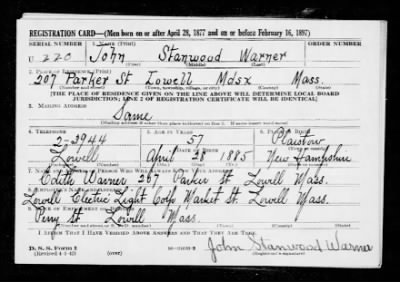 REGISTRATION CARD—(Men born on or after April 28, 1877 and on or before February 16, 1897)
SERIAL NUMBER 1. NAME (Print)
U 220 John Stanwood Warner
(First) (Middle) (Last)
2. PLACE OF RESIDENCE (Print)
207 Parker St Lowell Mdsx Mass.
(Number and street) (Town, township, village, or city) (County) (State)
[THE PLACE OF RESIDENCE GIVEN ON THE LINE ABOVE WILL DETERMINE LOCAL BOARD
JURISDICTION; LINE 2 OF REGISTRATION CERTIFICATE WILL BE IDENTICAL]
3. MAILING ADDRESS
Same
4. TELEPHONE 5. AGE IN YEARS 6. PLACE OF BIRTH
2-3944 57 Plaistow
DATE OF BIRTH
Lowell April 28 1885 New Hampshire
7. NAME AND ADDRESS OF PERSON WHO WILL ALWAYS KNOW YOUR ADDRESS
Edith Warner 207 Parker St. Lowell Mass.
8. EMPLOYER'S NAME AND ADDRESS
Lowell Electric Light Corp Market St. Lowell Mass.
9. PLACE OF EMPLOYMENT OR BUSINESS
Perry St Lowell Mass.
I AFFIRM THAT I HAVE VERIFIED ABOVE ANSWERS AND THAT THEY ARE TRUE.
D. S. S. Form 1
(Revised 4-1-42) (over)
John Stanwood Warner
(Registrant's signature)